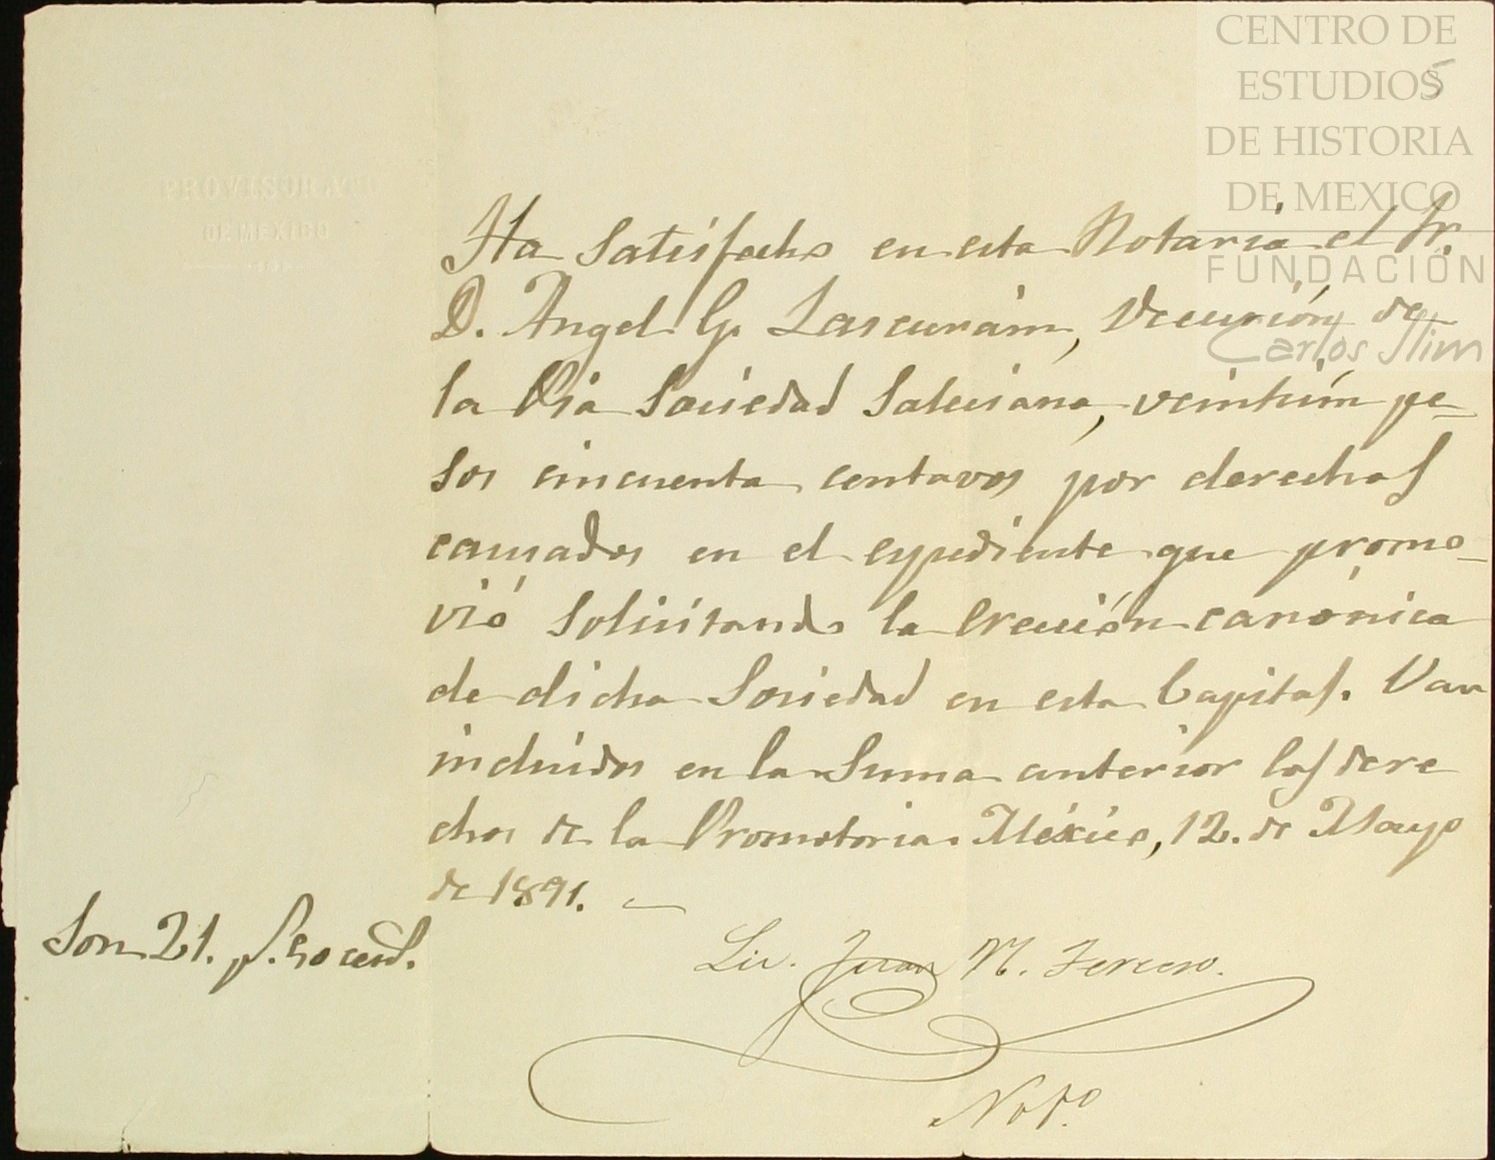 CENTRO DE
ESTUDIOS
DE HISTORIA
DE MEXICO
FUNDACIÓN
Carlos Slim
5
PROVISORATO
DE MEXICO
Ha satisfecho en esta Notaria el Sr.
D. Angel G. Lascuráin, Decurión de
la Pia Sociedad Salesiana, veintiún pe-
sos cincuenta centavos por derechos
causados en el expediente que promo-
vió solicitando la erección canónica
de dicha Sociedad en esta Capital. Van
incluidos en la suma anterior los dere
chos de la Promotoria. México, 12. de Mayo
de 1891. —
Son 21. p. 50 cent.
Lic. Juan M. Tercero.
Not.º